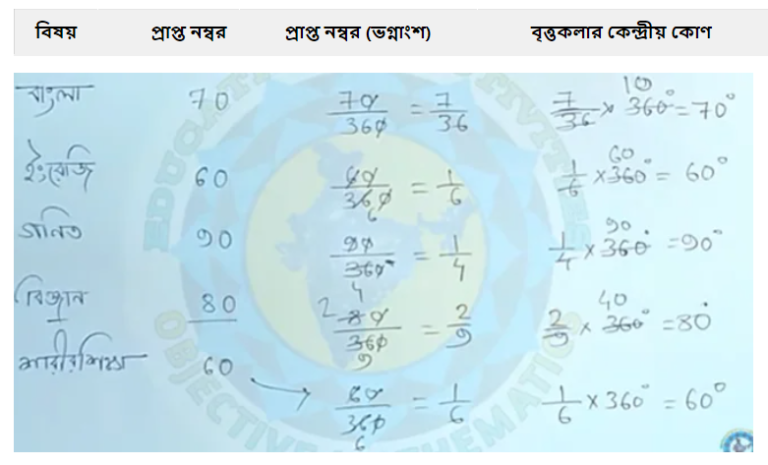 বিষয় প্রাপ্ত নম্বর প্রাপ্ত নম্বর (ভগ্নাংশ) বৃত্তকলার কেন্দ্রীয় কোণ
বাংলা 70 70/360 = 7/36 7/36 × 360° = 70° 10
ইংরেজি 60 60/360 = 1/6 6 1/6 × 360° = 60° 60
গনিত 90 90/360 = 1/4 4 1/4 × 360° = 90° 90
বিজ্ঞান 80 2 80/360 = 2/9 9 2/9 × 360° = 80° 40
শারীরশিক্ষা 60 → 60/360 = 1/6 6 1/6 × 360° = 60°
OBJECTIVE MATHEMATICS